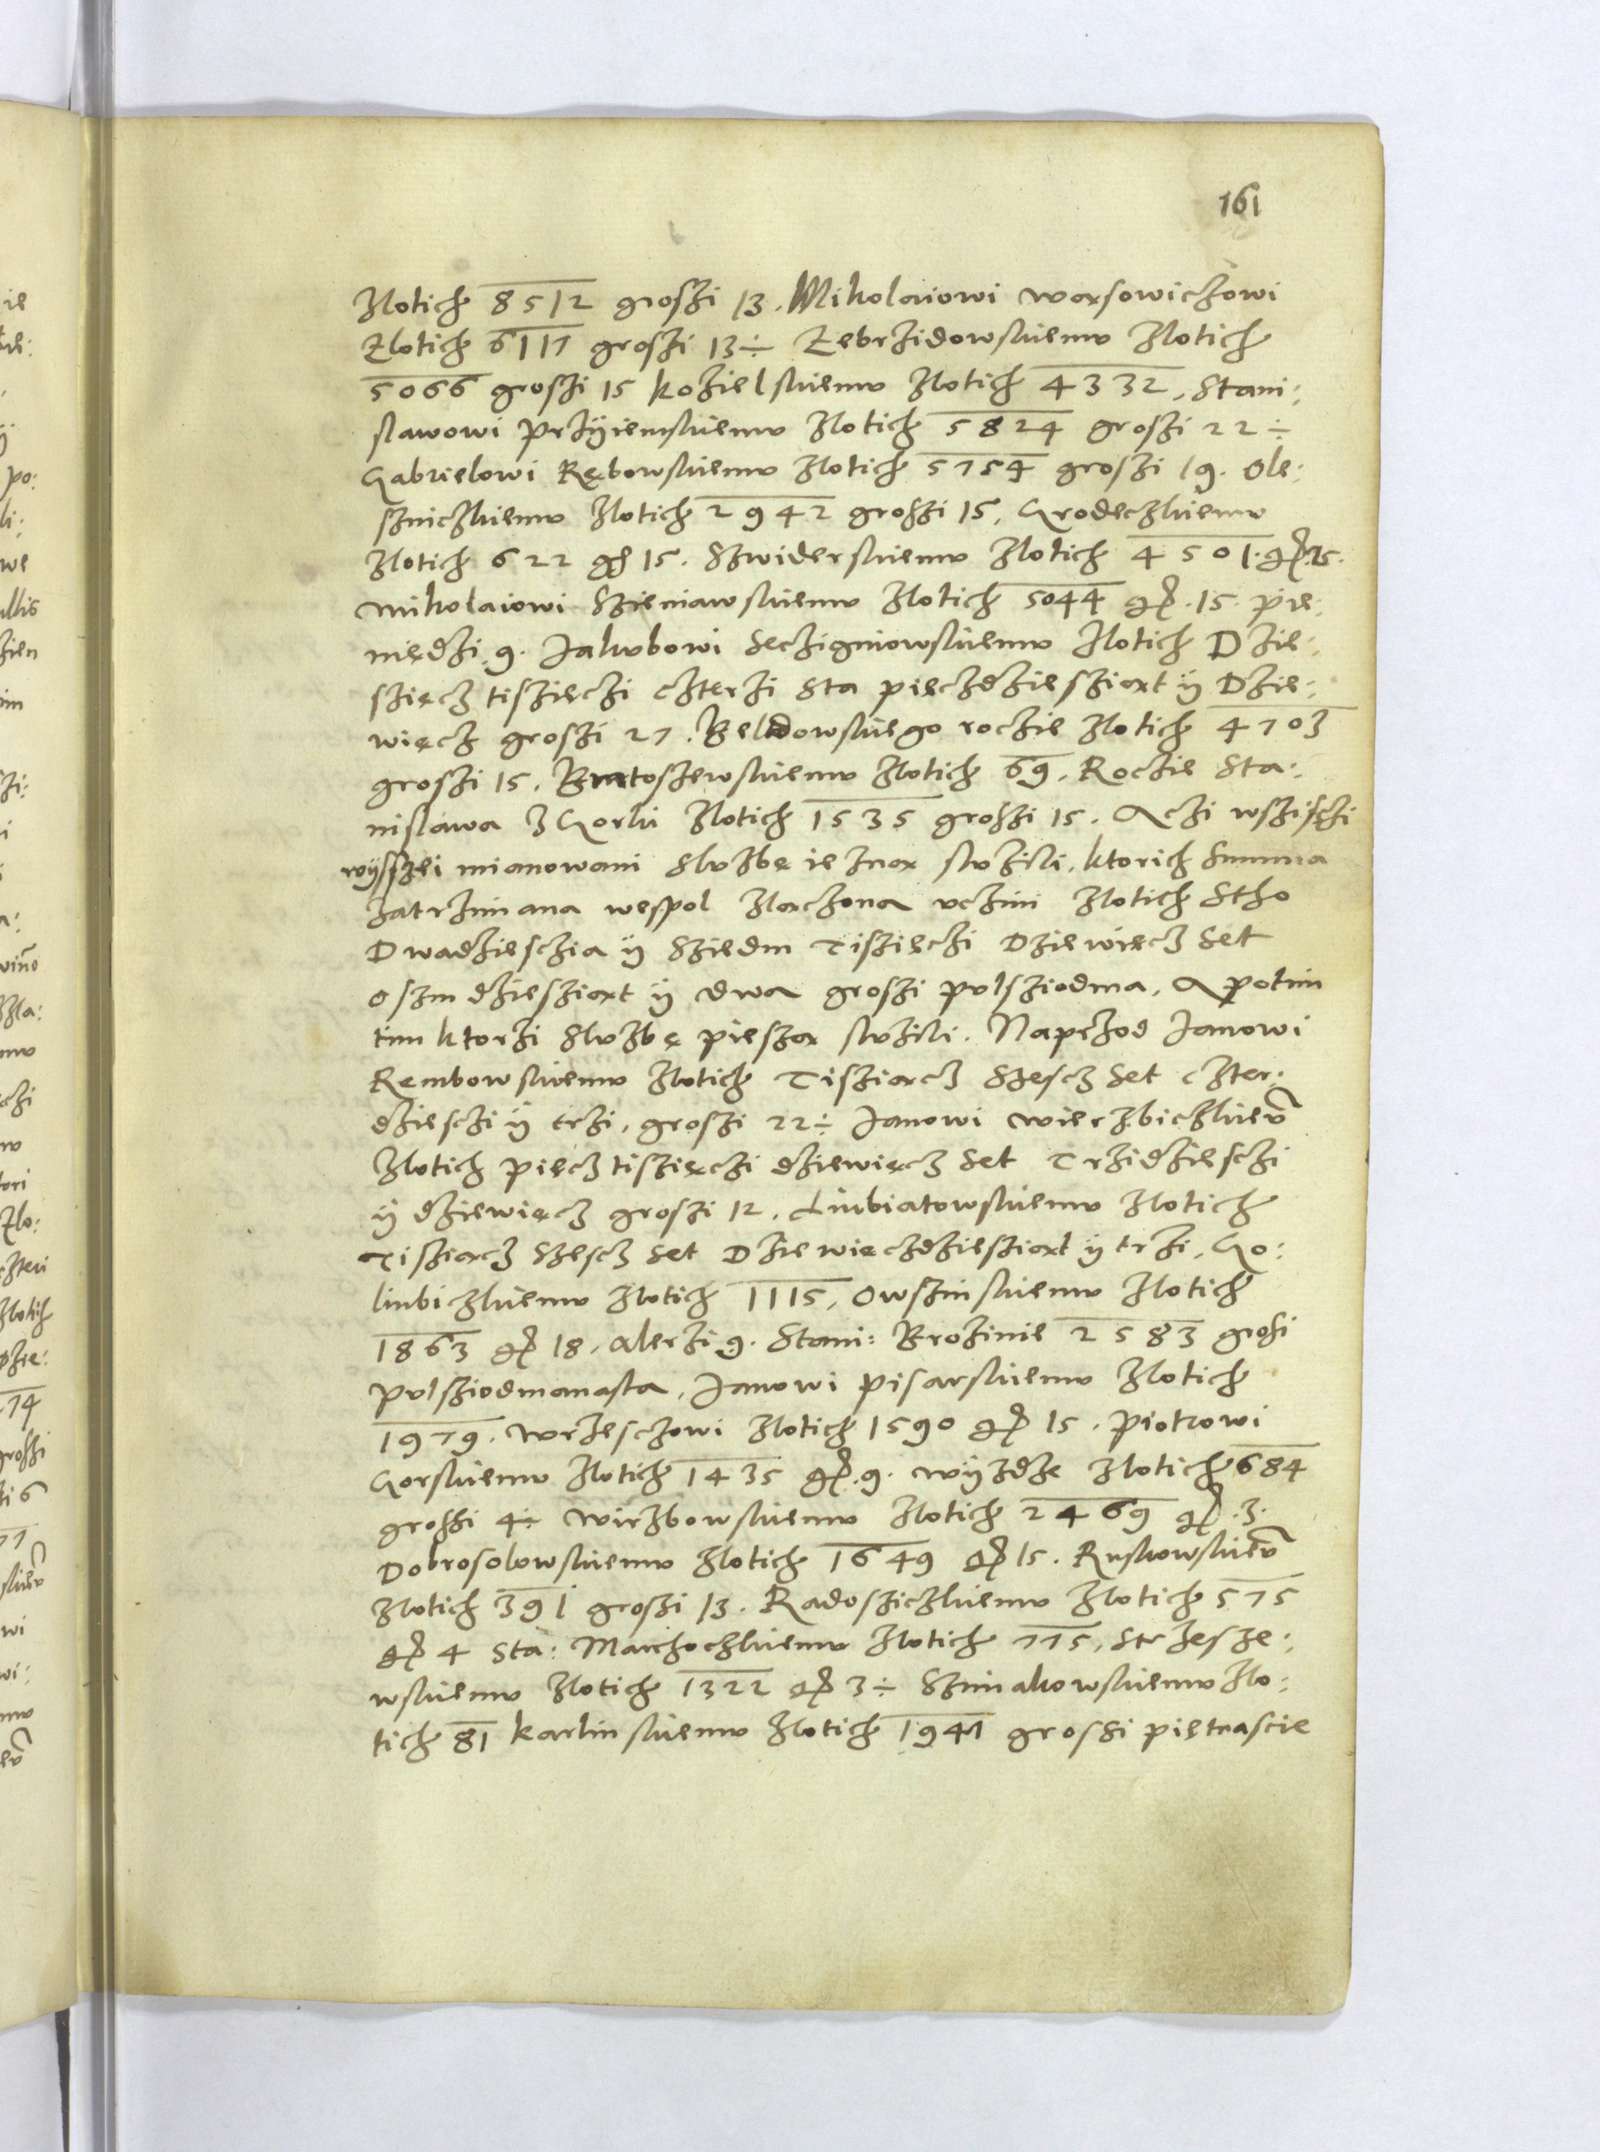 161
Zlotich 8512 groszi 13. Mikolaiowi warsowiczowi
Zlotich 6117 groszi 13÷ Zebrzidowskiemv Zlotich
5066 groszi 15 kozielskiemv Zlotich 4332, Stani:
slawowi przÿiemskiemv Zlotich 5824 groszi 22÷
Gabrielowi Rębowskiemv Zlotich 5754 groszi 19. Ole:
szniczkiemv Zlotich 2942 groszi 15, Grodeczkiemv
Zlotich 622 g 15. Szwiderskiemv Zlotich 4501. g 15.
Mikolaiowi Szieniawskiemv Zlotich 5044 g. 15. pie:
niędzi 9. Jakvbowi Seczigniowskiemv Zlotich Dzie:
szięcz tiszięczi czterzi sta pięczdziesziąt ÿ Dzie:
więcz groszi 27. Beldowskiego roczie Zlotich 4703
groszi 15, Bartoszewskiemv Zlotich 69, Roczie Sta:
nislawa z Gorki Zlotich 1535 groszi 15. A czi wsziszczi
wÿsszei mianowani slvzbę iezną slvzili, ktorich Summa
zatrzimana wespol zlączona vczini Zlotich Stho
Dwadziesczia ÿ Sziedm Tiszięczi Dziewięcz set
oszmdziesziąt ÿ dwa groszi pvlsziodma, A potim
tim ktorzi slvzbę pieszą slvzili. Napczod Janowi
Rembowskiemv Zlotich Tisziącz Szescz set czter:
dziesczi ÿ trzi, groszi 22÷ Janowi wierzbiczkiev
Zlotich pięcz tiszięczi dziewięcz set Trzidziesczi
ÿ dziewięcz groszi 12, Liubiatowskiemv Zlotich
Tisziącz Szescz set Dziewięczdziesziąt ÿ trzi, Go:
liubiczkiemv Zlotich 1115, Owszinskiemv Zlotich
1863 g 18, Alerzi 9. Stani: Brozinie 2583 grosi
pvlsziodmanasta, Janowi pisarskiemv Zlotich
1979. Wrzesczowi Zlotich 1590 g 15. Piotrowi
Gorskiemv Zlotich 1435 g. 9. Wÿzdze Zlotich 684
groszi 4÷ Wirzbowskiemv Zlotich 2469 g. 3.
Dobrosolowskiemv Zlotich 1649 g 15. Ruskowskiev
Zlotich 391 groszi 13. Radosziczkiemv Zlotich 575
g 4 Sta: Maichoczkiemv Zlotich 775, Strzesze:
wskiemv Zlotich 1322 g 3÷ Szimakowskiemv Zlo:
tich 81 karlinskiemv Zlotich 1947 groszi piętnascie